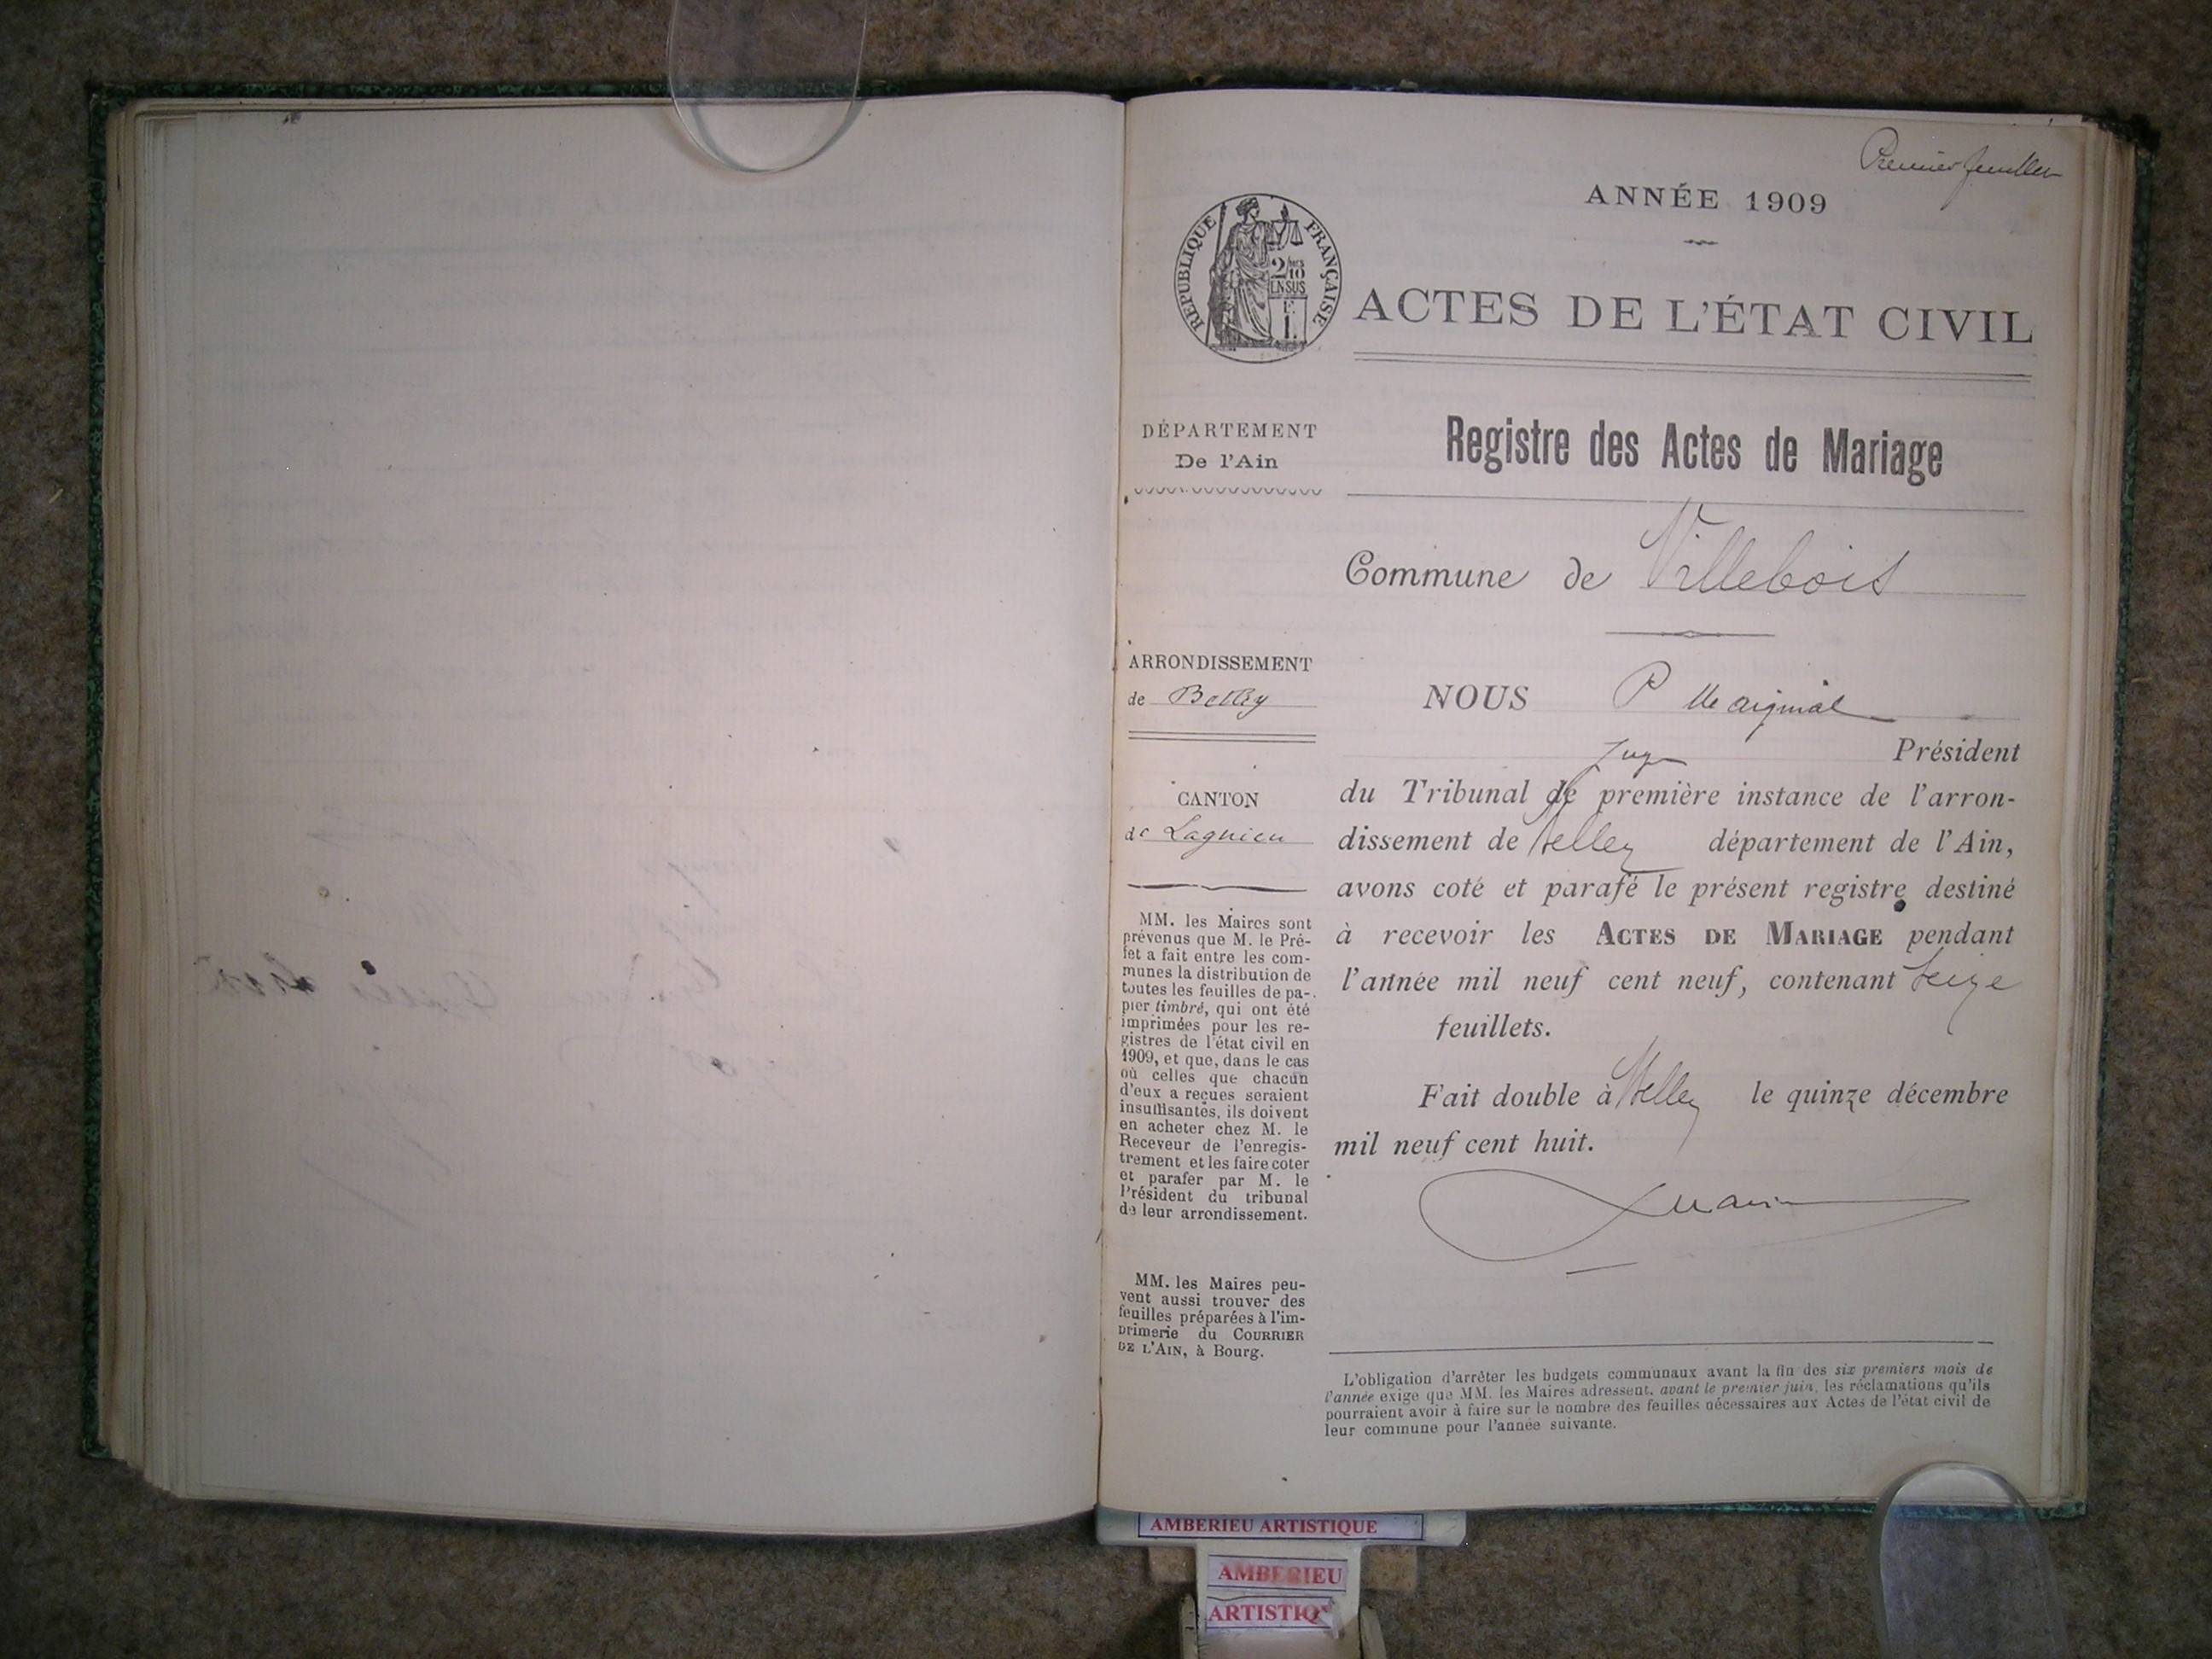 Premier feuillet
ANNÉE 1909
RÉPUBLIQUE FRANÇAISE
2/10
EN SUS
F.
1
ACTES DE L'ÉTAT CIVIL
DÉPARTEMENT
De l'Ain
Registre des Actes de Mariage
Commune de Villebois
ARRONDISSEMENT
de Belley
CANTON
de Lagnieu
MM. les Maires sont
prévenus que M. le Pré-
fet a fait entre les com-
munes la distribution de
toutes les feuilles de pa-
pier timbré, qui ont été
imprimées pour les re-
gistres de l'état civil en
1909, et que, dans le cas
où celles que chacun
d'eux a reçues seraient
insuffisantes, ils doivent
en acheter chez M. le
Receveur de l'enregis-
trement et les faire coter
et parafer par M. le
Président du tribunal
de leur arrondissement.
MM. les Maires peu-
vent aussi trouver des
feuilles préparées à l'im-
primerie du COURRIER
DE L'AIN, à Bourg.
NOUS P
Juge Président
du Tribunal de première instance de l'arron-
dissement de Belley département de l'Ain,
avons coté et parafé le présent registre destiné
à recevoir les ACTES DE MARIAGE pendant
l'année mil neuf cent neuf, contenant seize
feuillets.
Fait double à Belley le quinze décembre
mil neuf cent huit.
L'obligation d'arrêter les budgets communaux avant la fin des six premiers mois de
l'année exige que MM. les Maires adressent, avant le premier juin, les réclamations qu'ils
pourraient avoir à faire sur le nombre des feuilles nécessaires aux Actes de l'état civil de
leur commune pour l'année suivante.
AMBERIEU ARTISTIQUE
AMBERIEU
ARTISTIQ